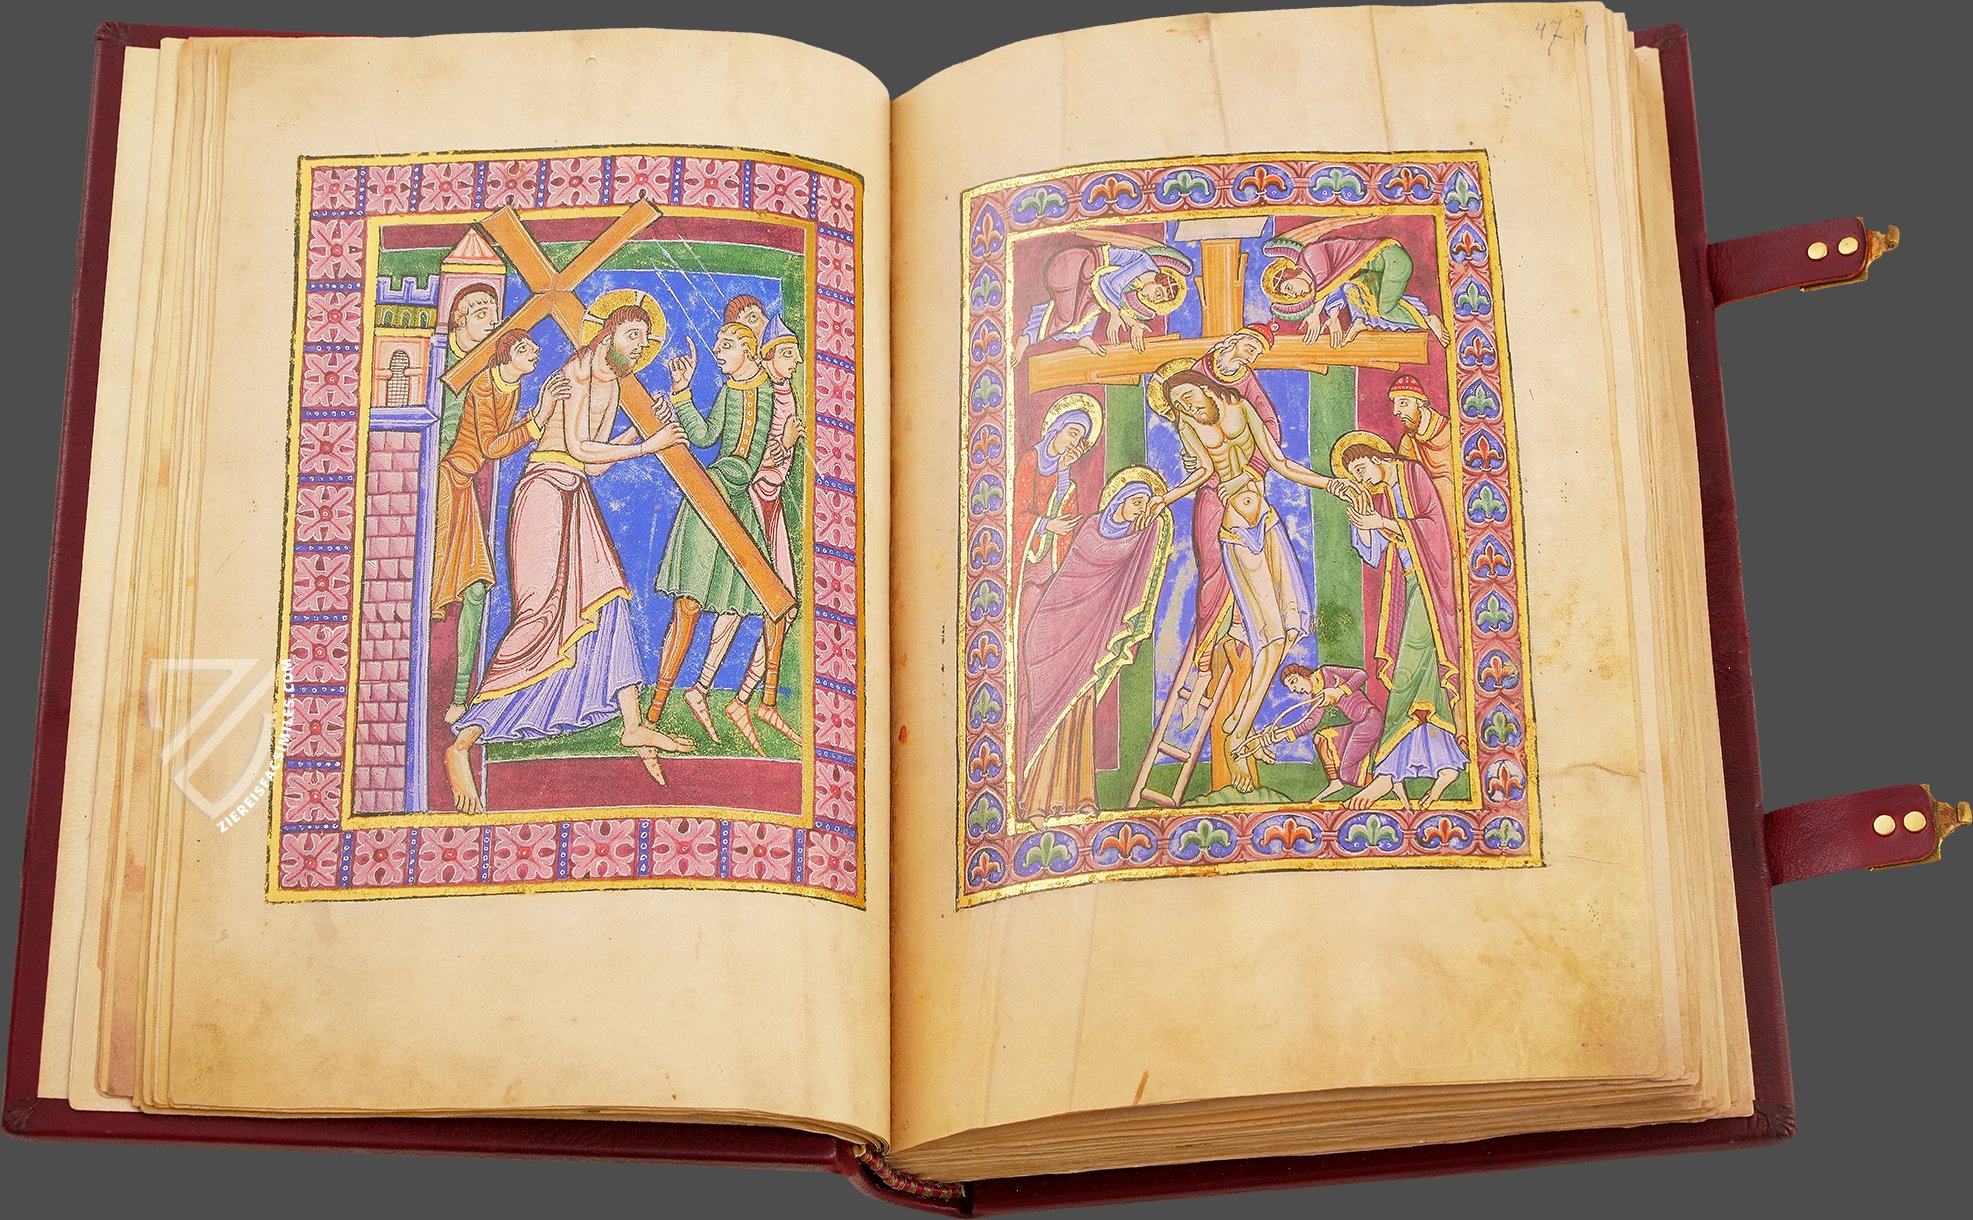 47 1
ZIEREISFACSIMILES.COM